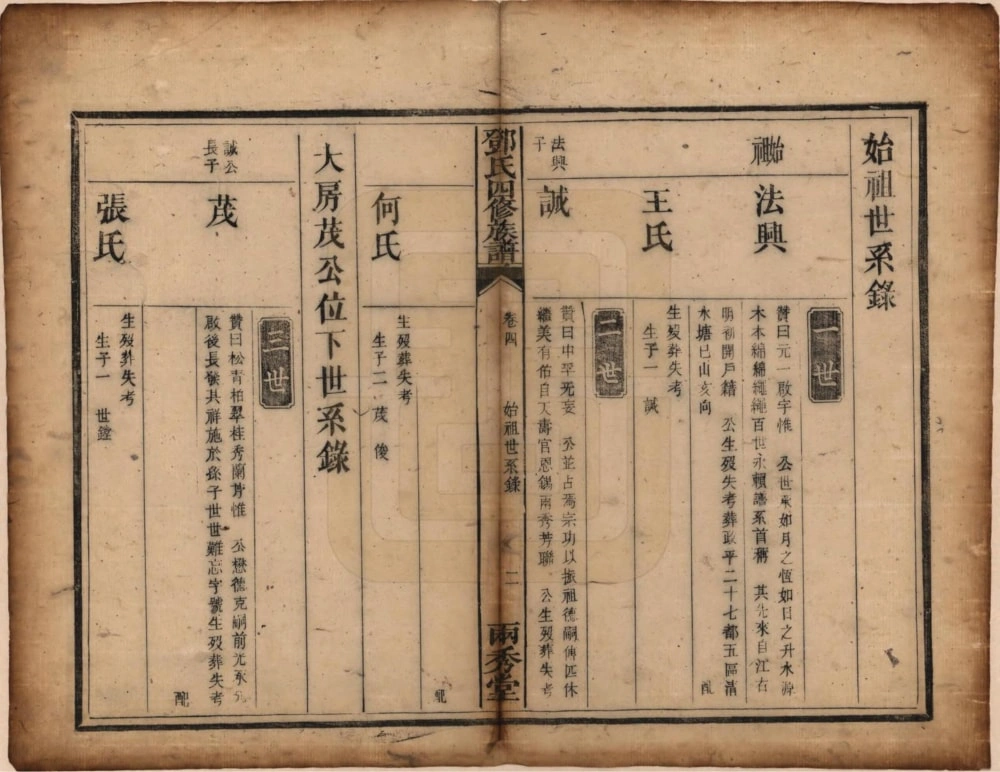 始祖世系錄
一世
始祖
法興
贊曰元一啟宇惟　公世系如月之恆如日之升水源
木本綿綿繩繩百世永賴譜系首稱　其先來自江右
明初開戶籍　公生歿失考葬政平二十七都五區清
水塘巳山亥向
配
王氏
生歿葬失考
生子一　誠
二世
法興子
誠
贊曰中孚无妄　公並占焉宗功以振祖德嗣傳匹休
繼美有佑自天壽官恩錫兩秀芳聯　公生歿葬失考
鄧氏四修族譜
卷四
始祖世系錄
二
兩秀堂
配
何氏
生歿葬失考
生子二　茂　俊
大房茂公位下世系錄
三世
誠公長子
茂
贊曰松青柏翠桂秀蘭芳惟　公懋德克嗣前光承先
啟後長發其祥施於孫子世世難忘字號生歿葬失考
配
張氏
生歿葬失考
生子一　世鏜